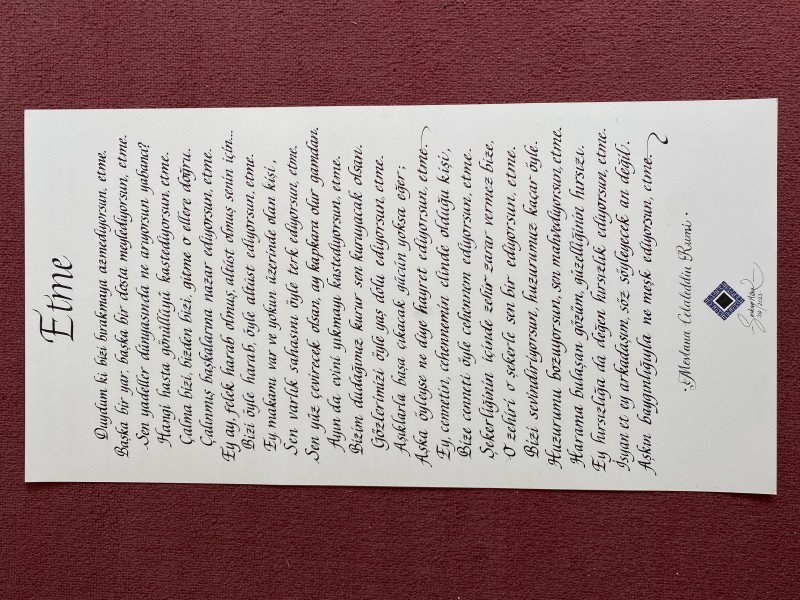 Etme
Duydum ki bizi bırakmaya azmediyorsun, etme.
Başka bir yar, başka bir dosta meylediyorsun, etme.
Sen yadeller dünyasında ne arıyorsun yabancı?
Hangi hasta gönüllüyü kastediyorsun, etme.
Çalma bizi, bizden bizi, gitme o ellere doğru.
Çalınmış başkalarına nazar ediyorsun, etme.
Ey ay, felek harab olmuş, altüst olmuş senin için...
Bizi öyle harab, öyle altüst ediyorsun, etme.
Ey makamı var ve yokun üzerinde olan kişi,
Sen varlık sahasını öyle terk ediyorsun, etme.
Sen yüz çevirecek olsan, ay kapkara olur gamdan.
Ayın da evini yıkmayı kastediyorsun, etme.
Bizim dudağımız kurur sen kuruyacak olsan.
Gözlerimizi öyle yaş dolu ediyorsun, etme.
Aşıklarla başa çıkacak gücün yoksa eğer;
Aşka öyleyse ne diye hayret ediyorsun, etme.
Ey, cennetin, cehennemin elinde olduğu kişi,
Bize cenneti öyle cehennem ediyorsun, etme.
Şekerliğinin içinde zehir zarar vermez bize,
O zehiri o şekerle sen bir ediyorsun, etme.
Bizi sevindiriyorsun, huzurumuz kaçar öyle.
Huzurumu bozuyorsun, sen mahvediyorsun, etme.
Harama bulaşan gözüm, güzelliğinin hırsızı.
Ey hırsızlığa da değen hırsızlık ediyorsun, etme.
İsyan et ey arkadaşım, söz söyleyecek an değil.
Aşkın baygınlığıyla ne meşk ediyorsun, etme.
· Mevlana Celaleddin Rumi ·